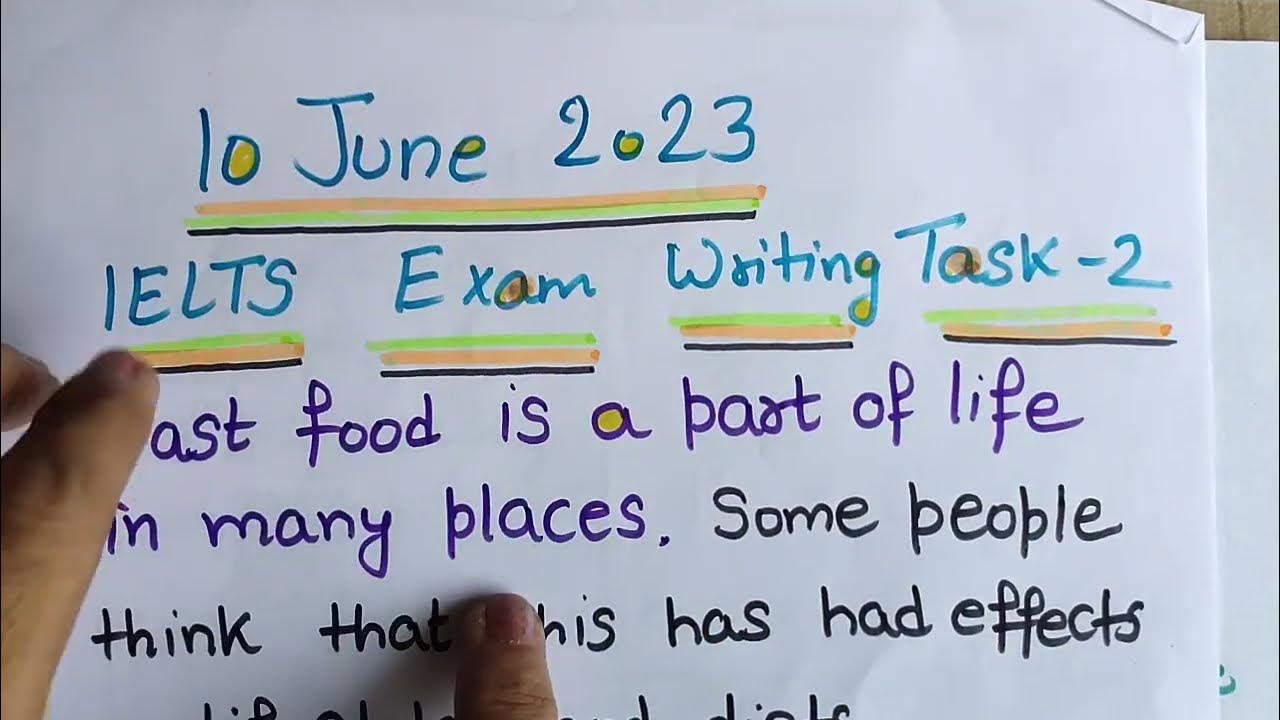 10 June 2023
IELTS Exam Writing Task-2
ast food is a part of life
in many places. Some people
think that his has had effects